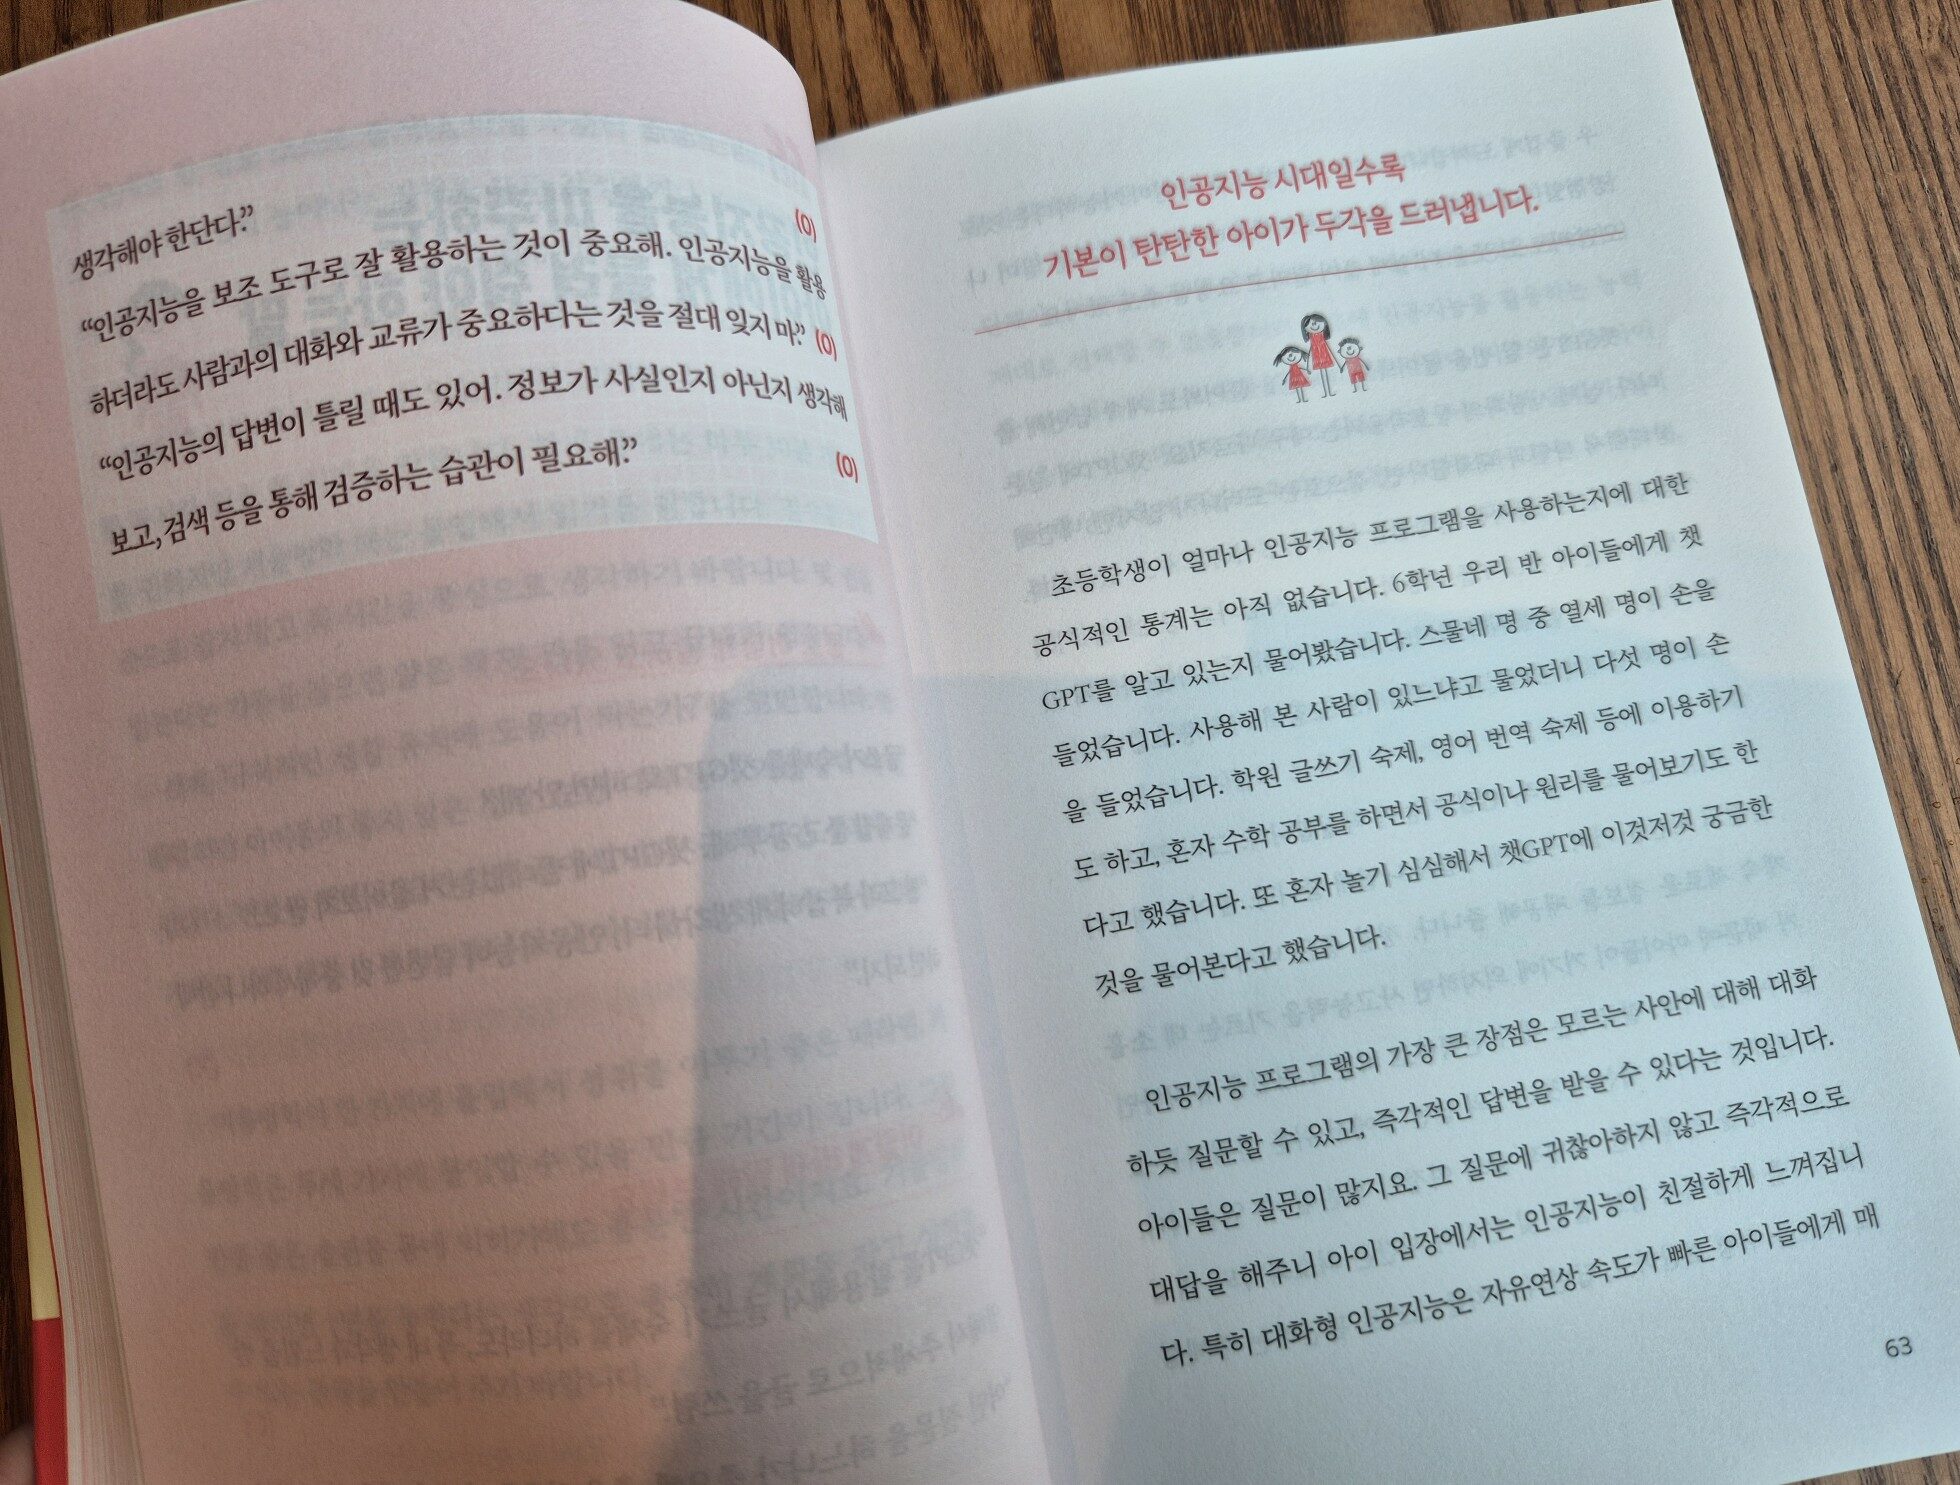 생각해야 한단다.” (O)
“인공지능을 보조 도구로 잘 활용하는 것이 중요해. 인공지능을 활용
하더라도 사람과의 대화와 교류가 중요하다는 것을 절대 잊지 마.” (O)
“인공지능의 답변이 틀릴 때도 있어. 정보가 사실인지 아닌지 생각해
보고, 검색 등을 통해 검증하는 습관이 필요해.” (O)
인공지능 시대일수록
기본이 탄탄한 아이가 두각을 드러냅니다.
초등학생이 얼마나 인공지능 프로그램을 사용하는지에 대한
공식적인 통계는 아직 없습니다. 6학년 우리 반 아이들에게 챗
GPT를 알고 있는지 물어봤습니다. 스물네 명 중 열세 명이 손을
들었습니다. 사용해 본 사람이 있느냐고 물었더니 다섯 명이 손
을 들었습니다. 학원 글쓰기 숙제, 영어 번역 숙제 등에 이용하기
도 하고, 혼자 수학 공부를 하면서 공식이나 원리를 물어보기도 한
다고 했습니다. 또 혼자 놀기 심심해서 챗GPT에 이것저것 궁금한
것을 물어본다고 했습니다.
인공지능 프로그램의 가장 큰 장점은 모르는 사안에 대해 대화
하듯 질문할 수 있고, 즉각적인 답변을 받을 수 있다는 것입니다.
아이들은 질문이 많지요. 그 질문에 귀찮아하지 않고 즉각적으로
대답을 해주니 아이 입장에서는 인공지능이 친절하게 느껴집니
다. 특히 대화형 인공지능은 자유연상 속도가 빠른 아이들에게 매
63